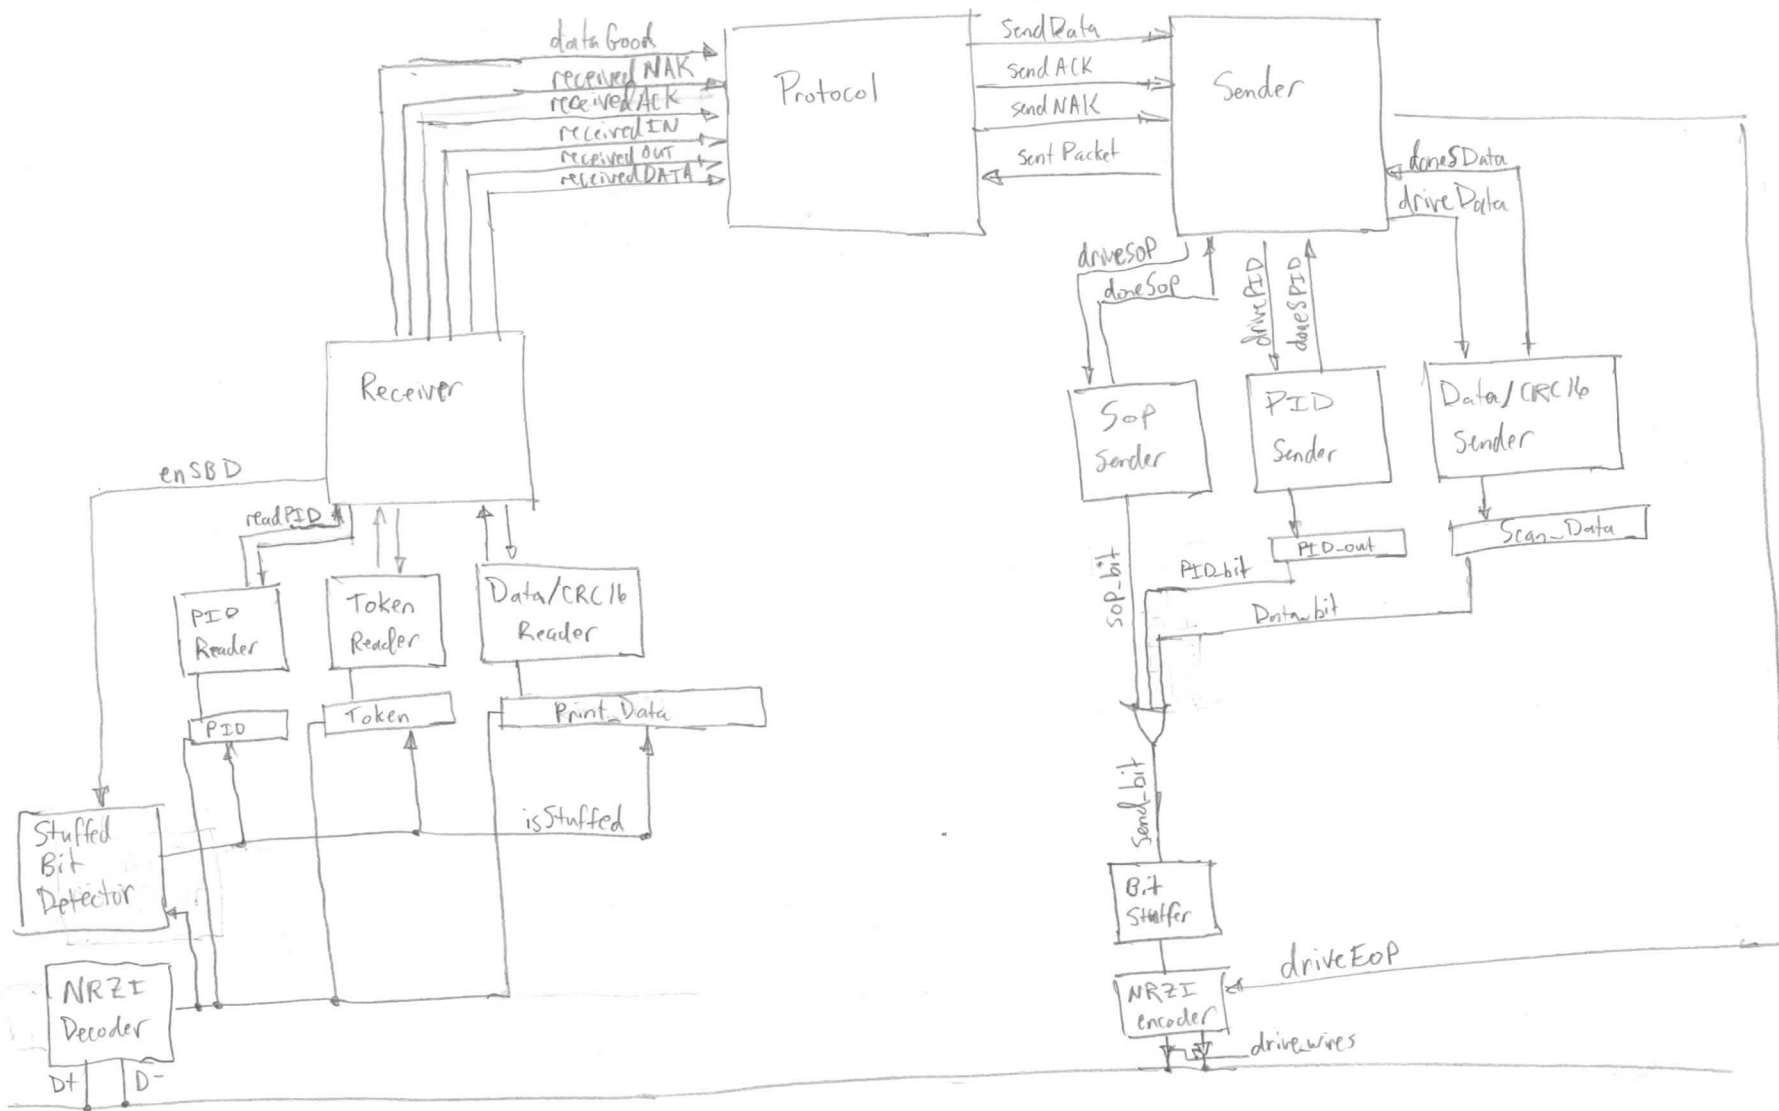 dataGood
receivedNAK
receivedACK
receivedIN
receivedOUT
receivedDATA
Protocol
sendData
sendACK
sendNAK
sentPacket
Sender
doneSData
driveData
driveSOP
doneSOP
drivePID
doneSPID
Receiver
enSBD
readPID
SOP
Sender
PID
Sender
Data/CRC16
Sender
PID_out
Scan_Data
SOP_bit
PID_bit
Data_bit
PID
Reader
Token
Reader
Data/CRC16
Reader
PID
Token
Print_Data
isStuffed
Send_bit
Stuffed
Bit
Detector
Bit
Stuffer
NRZI
Decoder
D+
D-
NRZI
encoder
driveEOP
drive_wires